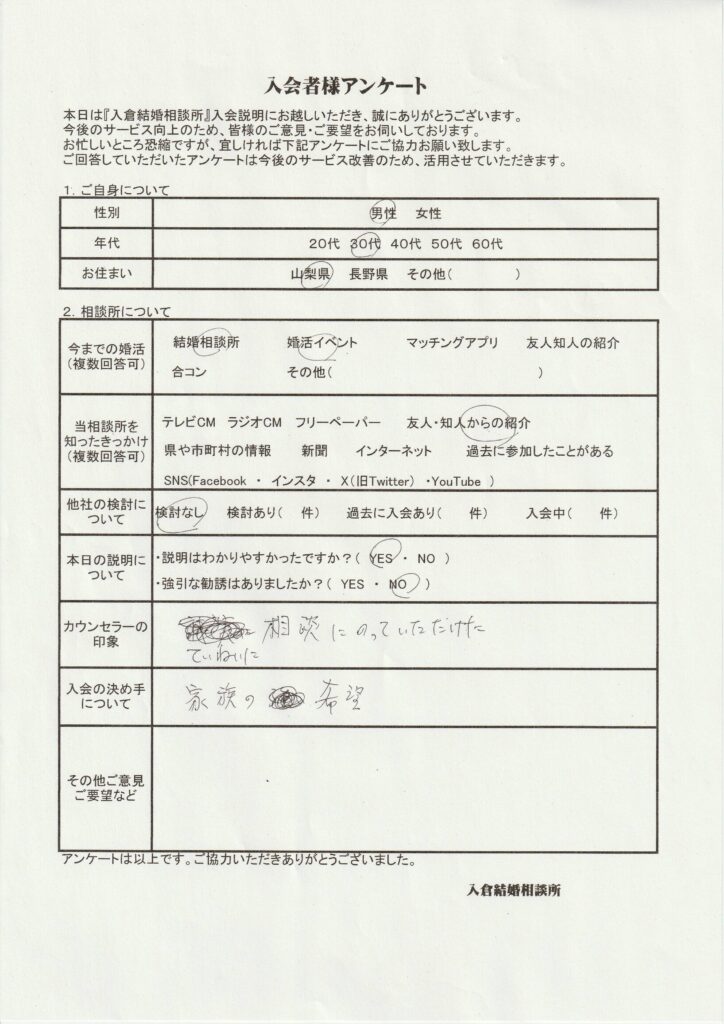 入会者様アンケート
本日は『入倉結婚相談所』入会説明にお越しいただき、誠にありがとうございます。
今後のサービス向上のため、皆様のご意見・ご要望をお伺いしております。
お忙しいところ恐縮ですが、宜しければ下記アンケートにご協力お願い致します。
ご回答していただいたアンケートは今後のサービス改善のため、活用させていただきます。
1．ご自身について
性別 男性 女性
年代 20代 30代 40代 50代 60代
お住まい 山梨県 長野県 その他( )
2．相談所について
今までの婚活
(複数回答可)
結婚相談所 婚活イベント マッチングアプリ 友人知人の紹介
合コン その他( )
当相談所を
知ったきっかけ
(複数回答可)
テレビCM ラジオCM フリーペーパー 友人・知人からの紹介
県や市町村の情報 新聞 インターネット 過去に参加したことがある
SNS(Facebook ・ インスタ ・ X(旧Twitter) ・YouTube )
他社の検討に
ついて
検討なし 検討あり( 件) 過去に入会あり( 件) 入会中( 件)
本日の説明に
ついて
・説明はわかりやすかったですか？( YES ・ NO )
・強引な勧誘はありましたか？( YES ・ NO )
カウンセラーの
印象
相談にのっていただけた
ていねいに
入会の決め手
について
家族の 希望
その他ご意見
ご要望など
アンケートは以上です。ご協力いただきありがとうございました。
入倉結婚相談所